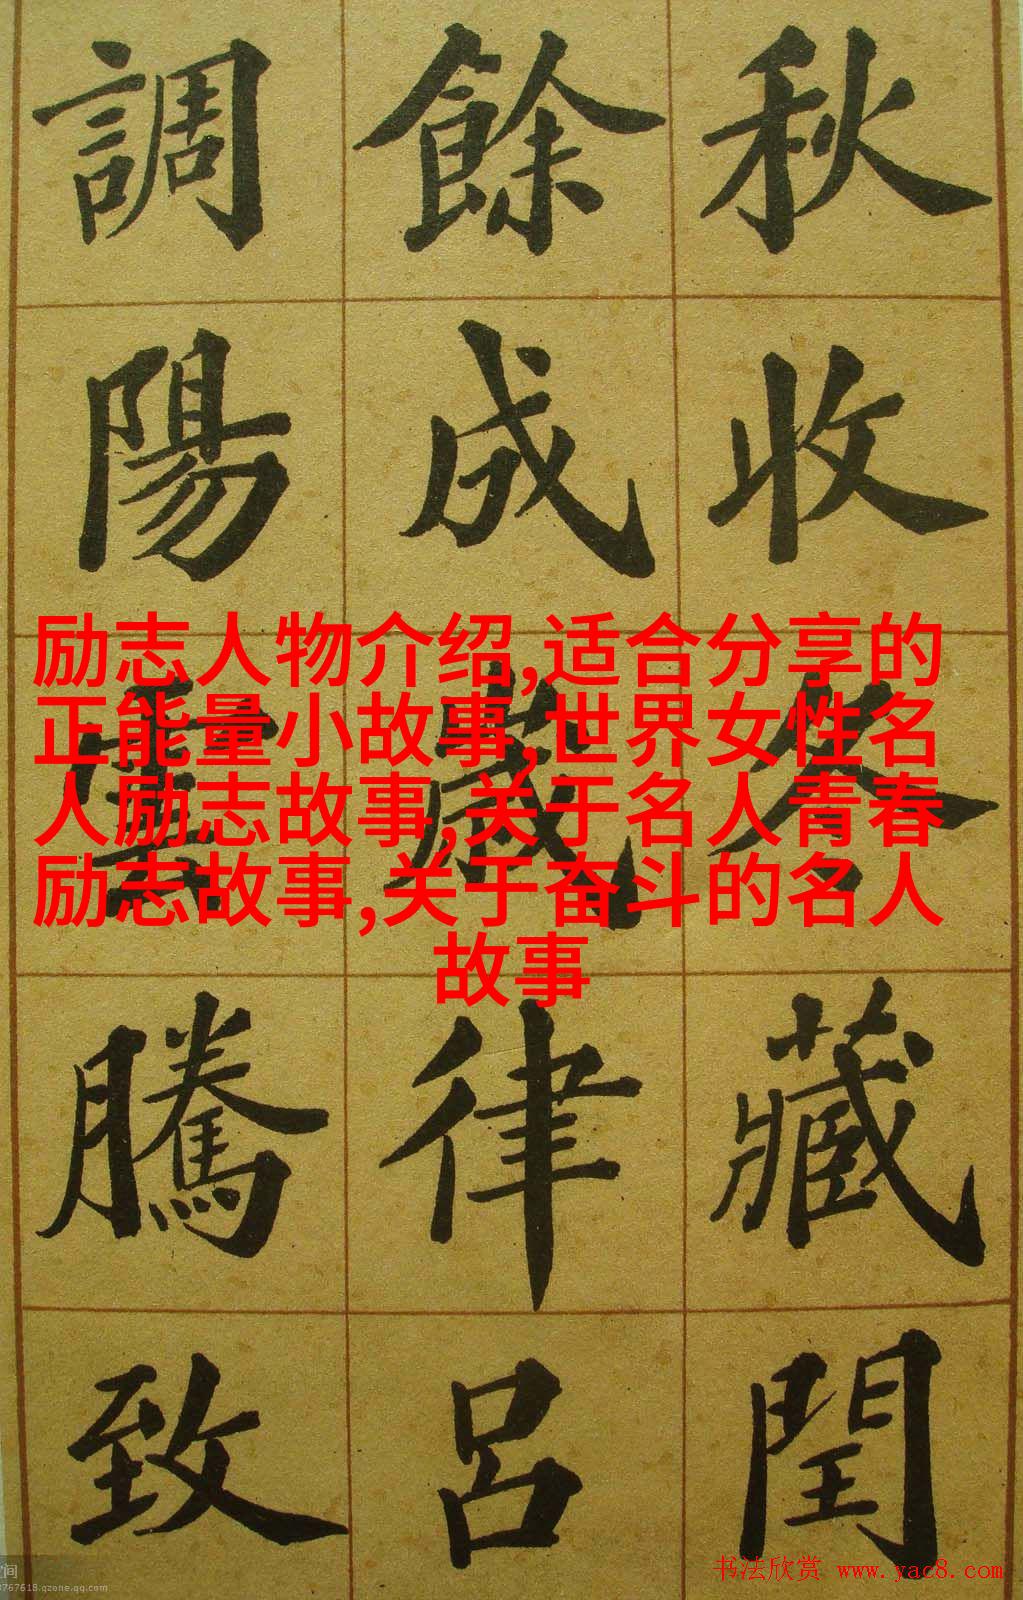 秋收冬藏閏
餘成歲律呂
調陽雲騰致
励志人物介绍,适合分享的
正能量小故事,世界女性名
人励志故事,关于名人青春
励志故事,关于奋斗的名人
故事
书法欣赏 www.yac8.com
间
767618.qzone.qq.com